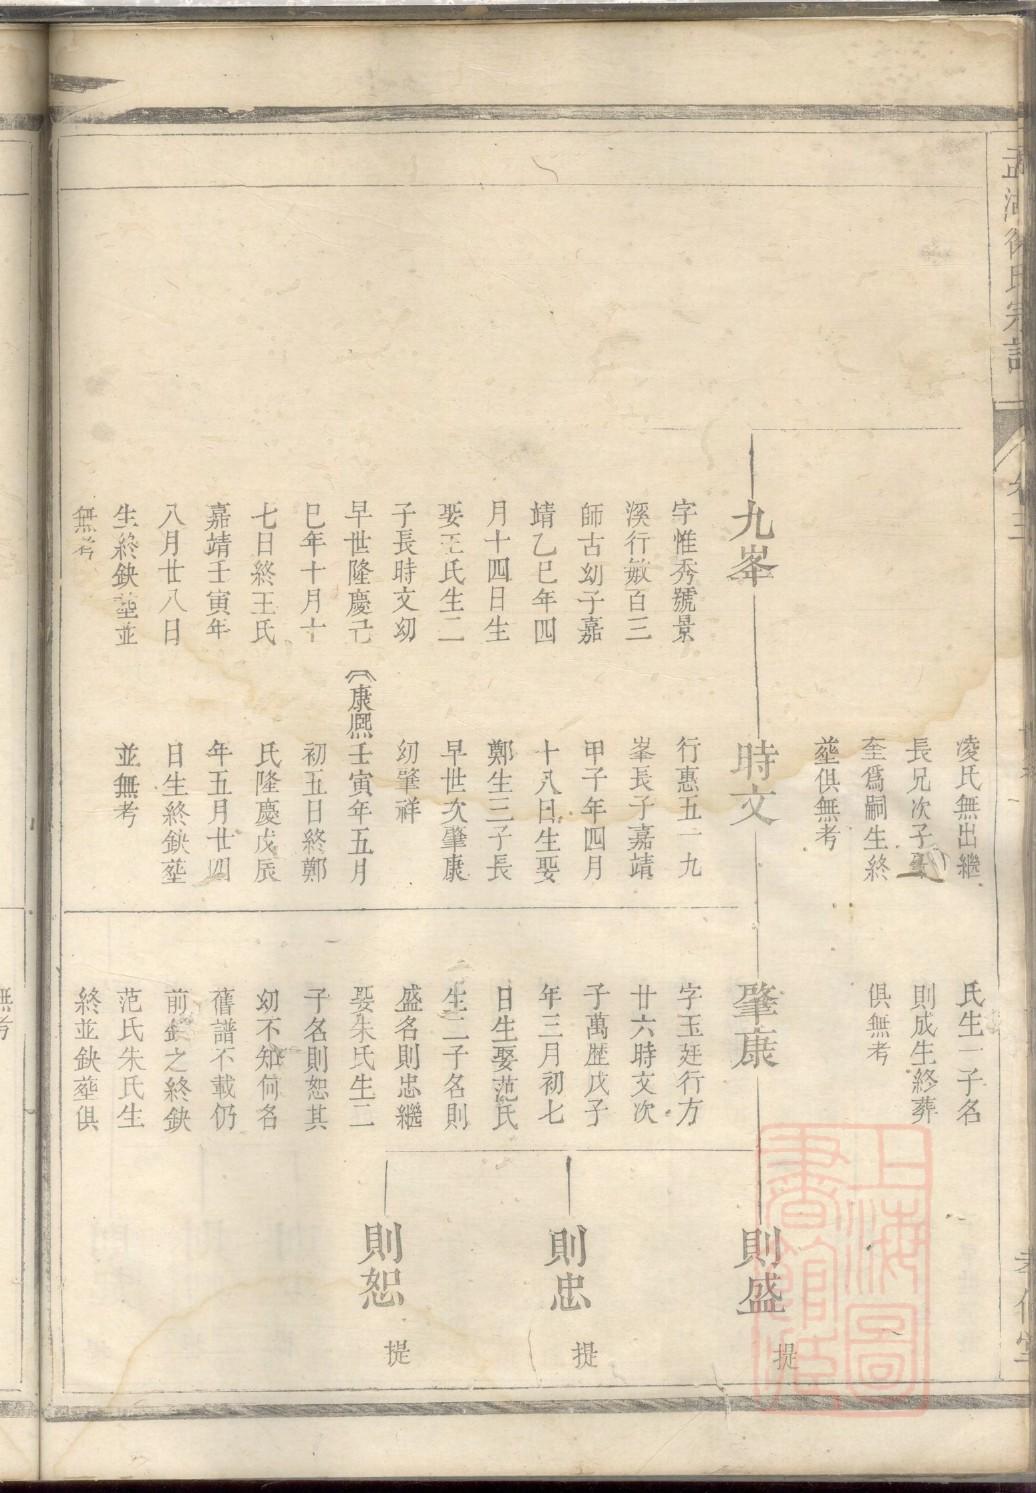 凌氏無出繼
長兄次子
奎爲嗣生終
塟俱無考
氏生一子名
則成生終葬
俱無考
九峯
字惟秀號景
溪行敏百三
師古幼子嘉
靖乙巳年四
月十四日生
娶王氏生二
子長時文幼
早世隆慶元
巳年十月十
七日終王氏
嘉靖壬寅年
八月廿八日
生終缺塟並
無考
時文
行惠五一九
峯長子嘉靖
甲子年四月
十八日生娶
鄭生三子長
早世次肇康
幼肇祥
《康熙壬寅年五月
初五日終鄭
氏隆慶戊辰
年五月廿四
日生終缺塟
並無考
肇康
字玉廷行方
廿六時文次
子萬歷戊子
年三月初七
日生娶范氏
生二子名則
盛名則忠繼
娶朱氏生二
子名則恕其
幼不知何名
舊譜不載仍
前缺之終缺
范氏朱氏生
終並缺塟俱
則盛
提
則忠
提
則恕
提
無考
上海圖
書館藏